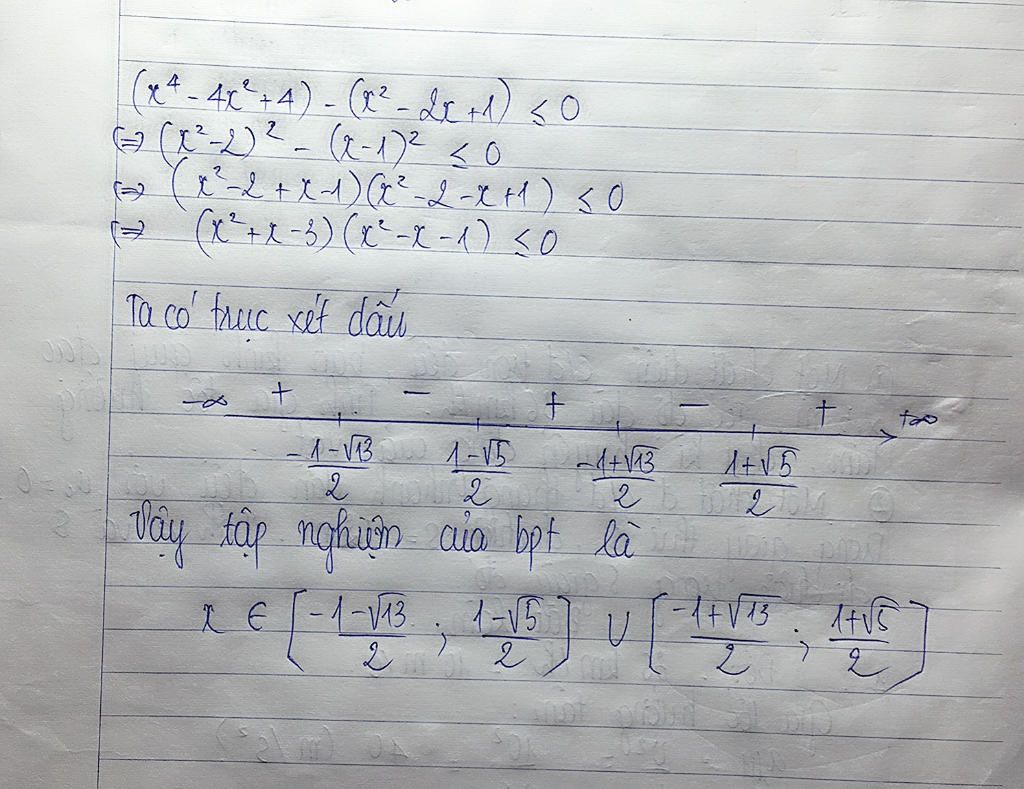 (x⁴ - 4x² + 4) - (x² - 2x + 1) ≤ 0
⇔ (x² - 2)² - (x - 1)² ≤ 0
⇔ (x² - 2 + x - 1)(x² - 2 - x + 1) ≤ 0
⇔ (x² + x - 3)(x² - x - 1) ≤ 0
Ta có trục xét dấu
-∞ + - + - + +∞
-1-√13/2 1-√5/2 -1+√13/2 1+√5/2
Vậy tập nghiệm của bpt là
x ∈ [-1-√13/2 ; 1-√5/2] ∪ [-1+√13/2 ; 1+√5/2]